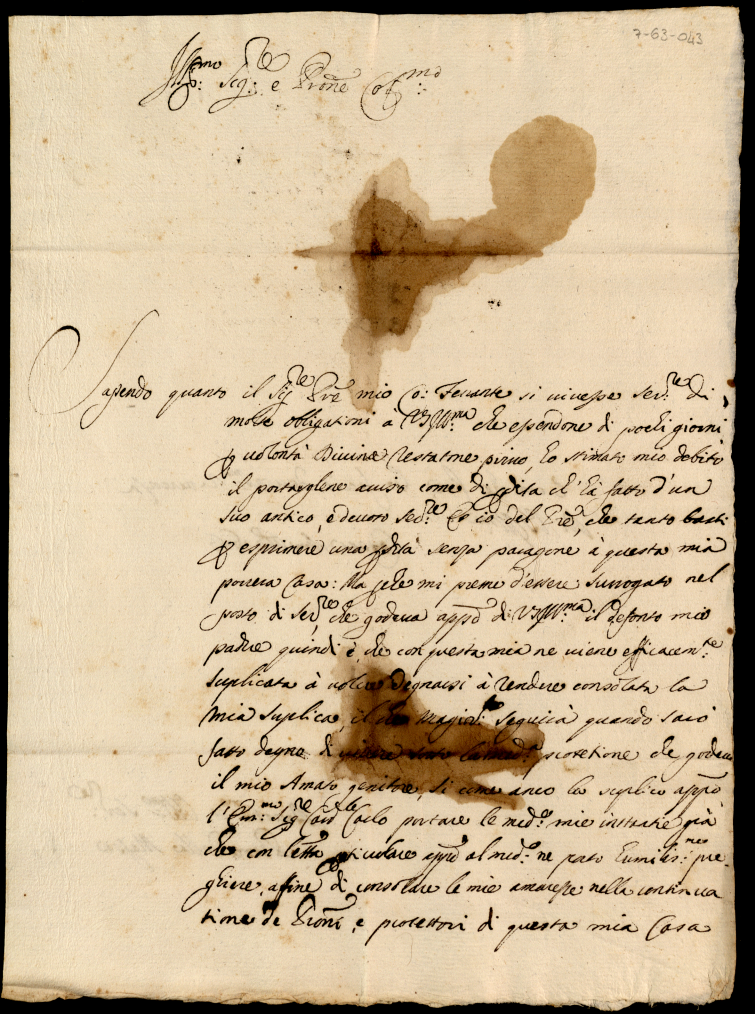 7-63-043
Ill.mo Sig.re e Prone Col.mo
Sapendo quanto il Sig.re Pre mio Co: Ferrante si vivesse Ser.re di
molte obligationi à VSIll.ma che essendone di pochi giorni
volontà Divina restatone privo, ho stimato mio debito
il portarglene aviso come di pdita ch'hà fatto d'un
suo antico, e devoto Ser.re Et io del Pre, che tanto basti
esprimere una pdita senza paragone à questa mia
povera Casa: Ma pche mi preme d'essere surrogato nel
posto di Ser.re che godeva appo di VSIll.ma il defonto mio
padre quindi è, che con questa mia ne viene efficacem.te
suplicata à voler degnarsi à rendere consolata la
mia suplica, il che seguirà quando sarò
fatto degno di protetione che godeva
il mio Amato genitore, Si come anco la suplico appo
l'Em.mo Sig.re Card.le Carlo portare le med.e mie instanze già
che con lettra pticulare appo al med.o ne porto humiliss.me pre-
ghiere, affine di consolare le mie amarezze nella continua
tione de Proni, e protettori di questa mia Casa